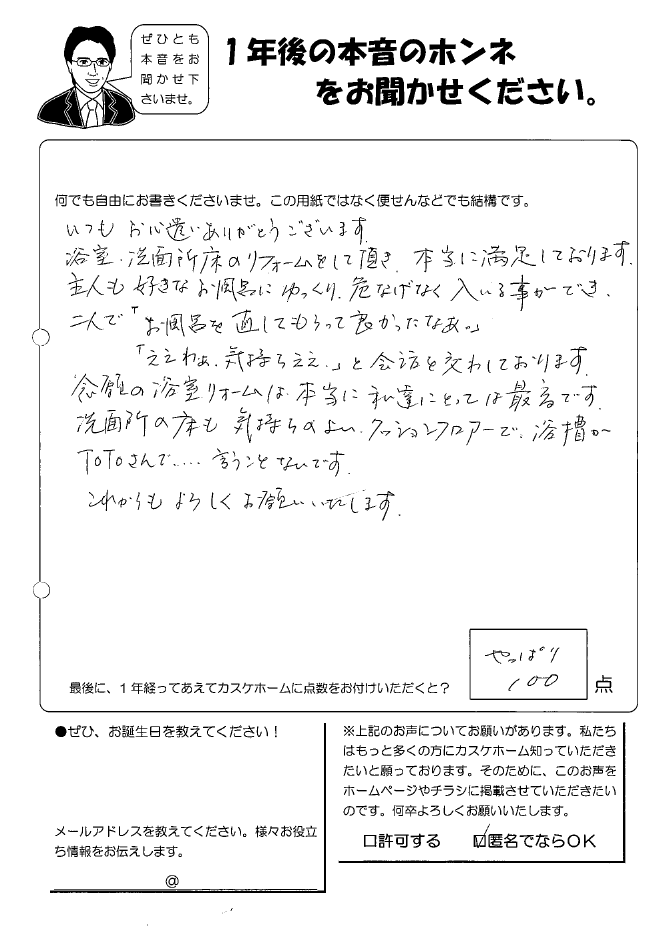 ぜひとも
本音をお
聞かせ下
さいませ。
1年後の本音のホンネ
をお聞かせください。
何でも自由にお書きくださいませ。この用紙ではなく便せんなどでも結構です。
いつも お心遣いありがとうございます。
浴室・洗面所床のリフォームをして頂き、本当に満足しております。
主人も好きなお風呂にゆっくり、危なげなく入いる事ができ、
二人で「お風呂を直してもらって良かったなあ。」
「ええわぁ、気持ちええ。」と会話を交わしております。
念願の浴室リフォームは、本当に私達にとっては最高です。
洗面所の床も気持ちのよい、クッションフロアーで、浴槽が
TOTOさんで‥‥言うことないです。
これからもよろしくお願いいたします。
やっぱり
100
最後に、1年経ってあえてカスケホームに点数をお付けいただくと? 点
●ぜひ、お誕生日を教えてください!
メールアドレスを教えてください。様々お役立
ち情報をお伝えします。
@
※上記のお声についてお願いがあります。私たち
はもっと多くの方にカスケホーム知っていただき
たいと願っております。そのために、このお声を
ホームページやチラシに掲載させていただきたい
のです。何卒よろしくお願いいたします。
□許可する ☑匿名でならOK